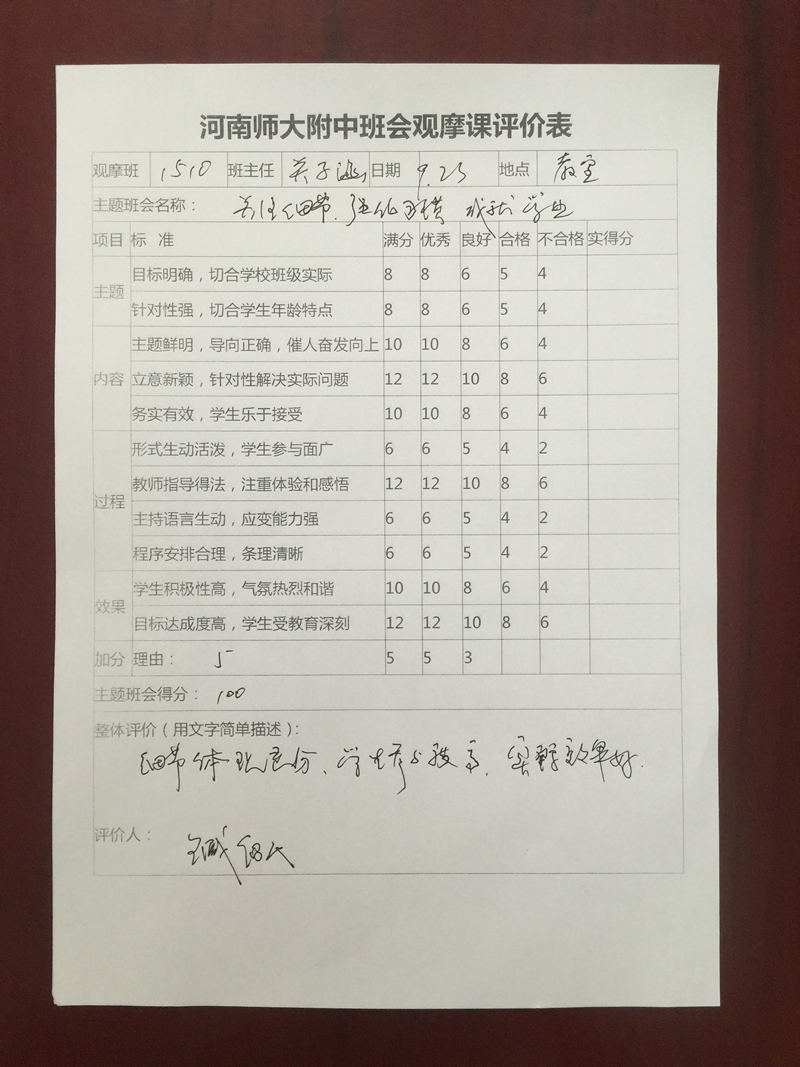 河南师大附中班会观摩课评价表
观摩班 1510 班主任 关子涵 日期 9.23 地点 教室
主题班会名称： 关注细节、强化 成就学业
项目 标 准 满分 优秀 良好 合格 不合格 实得分
主题 目标明确，切合学校班级实际 8 8 6 5 4
针对性强，切合学生年龄特点 8 8 6 5 4
内容 主题鲜明，导向正确，催人奋发向上 10 10 8 6 4
立意新颖，针对性解决实际问题 12 12 10 8 6
务实有效，学生乐于接受 10 10 8 6 4
过程 形式生动活泼，学生参与面广 6 6 5 4 2
教师指导得法，注重体验和感悟 12 12 10 8 6
主持语言生动，应变能力强 6 6 5 4 2
程序安排合理，条理清晰 6 6 5 4 2
效果 学生积极性高，气氛热烈和谐 10 10 8 6 4
目标达成度高，学生受教育深刻 12 12 10 8 6
加分 理由： 5 5 5 3
主题班会得分： 100
整体评价（用文字简单描述）：
细节体现充份、学生参与度高，实际效果好.
评价人：